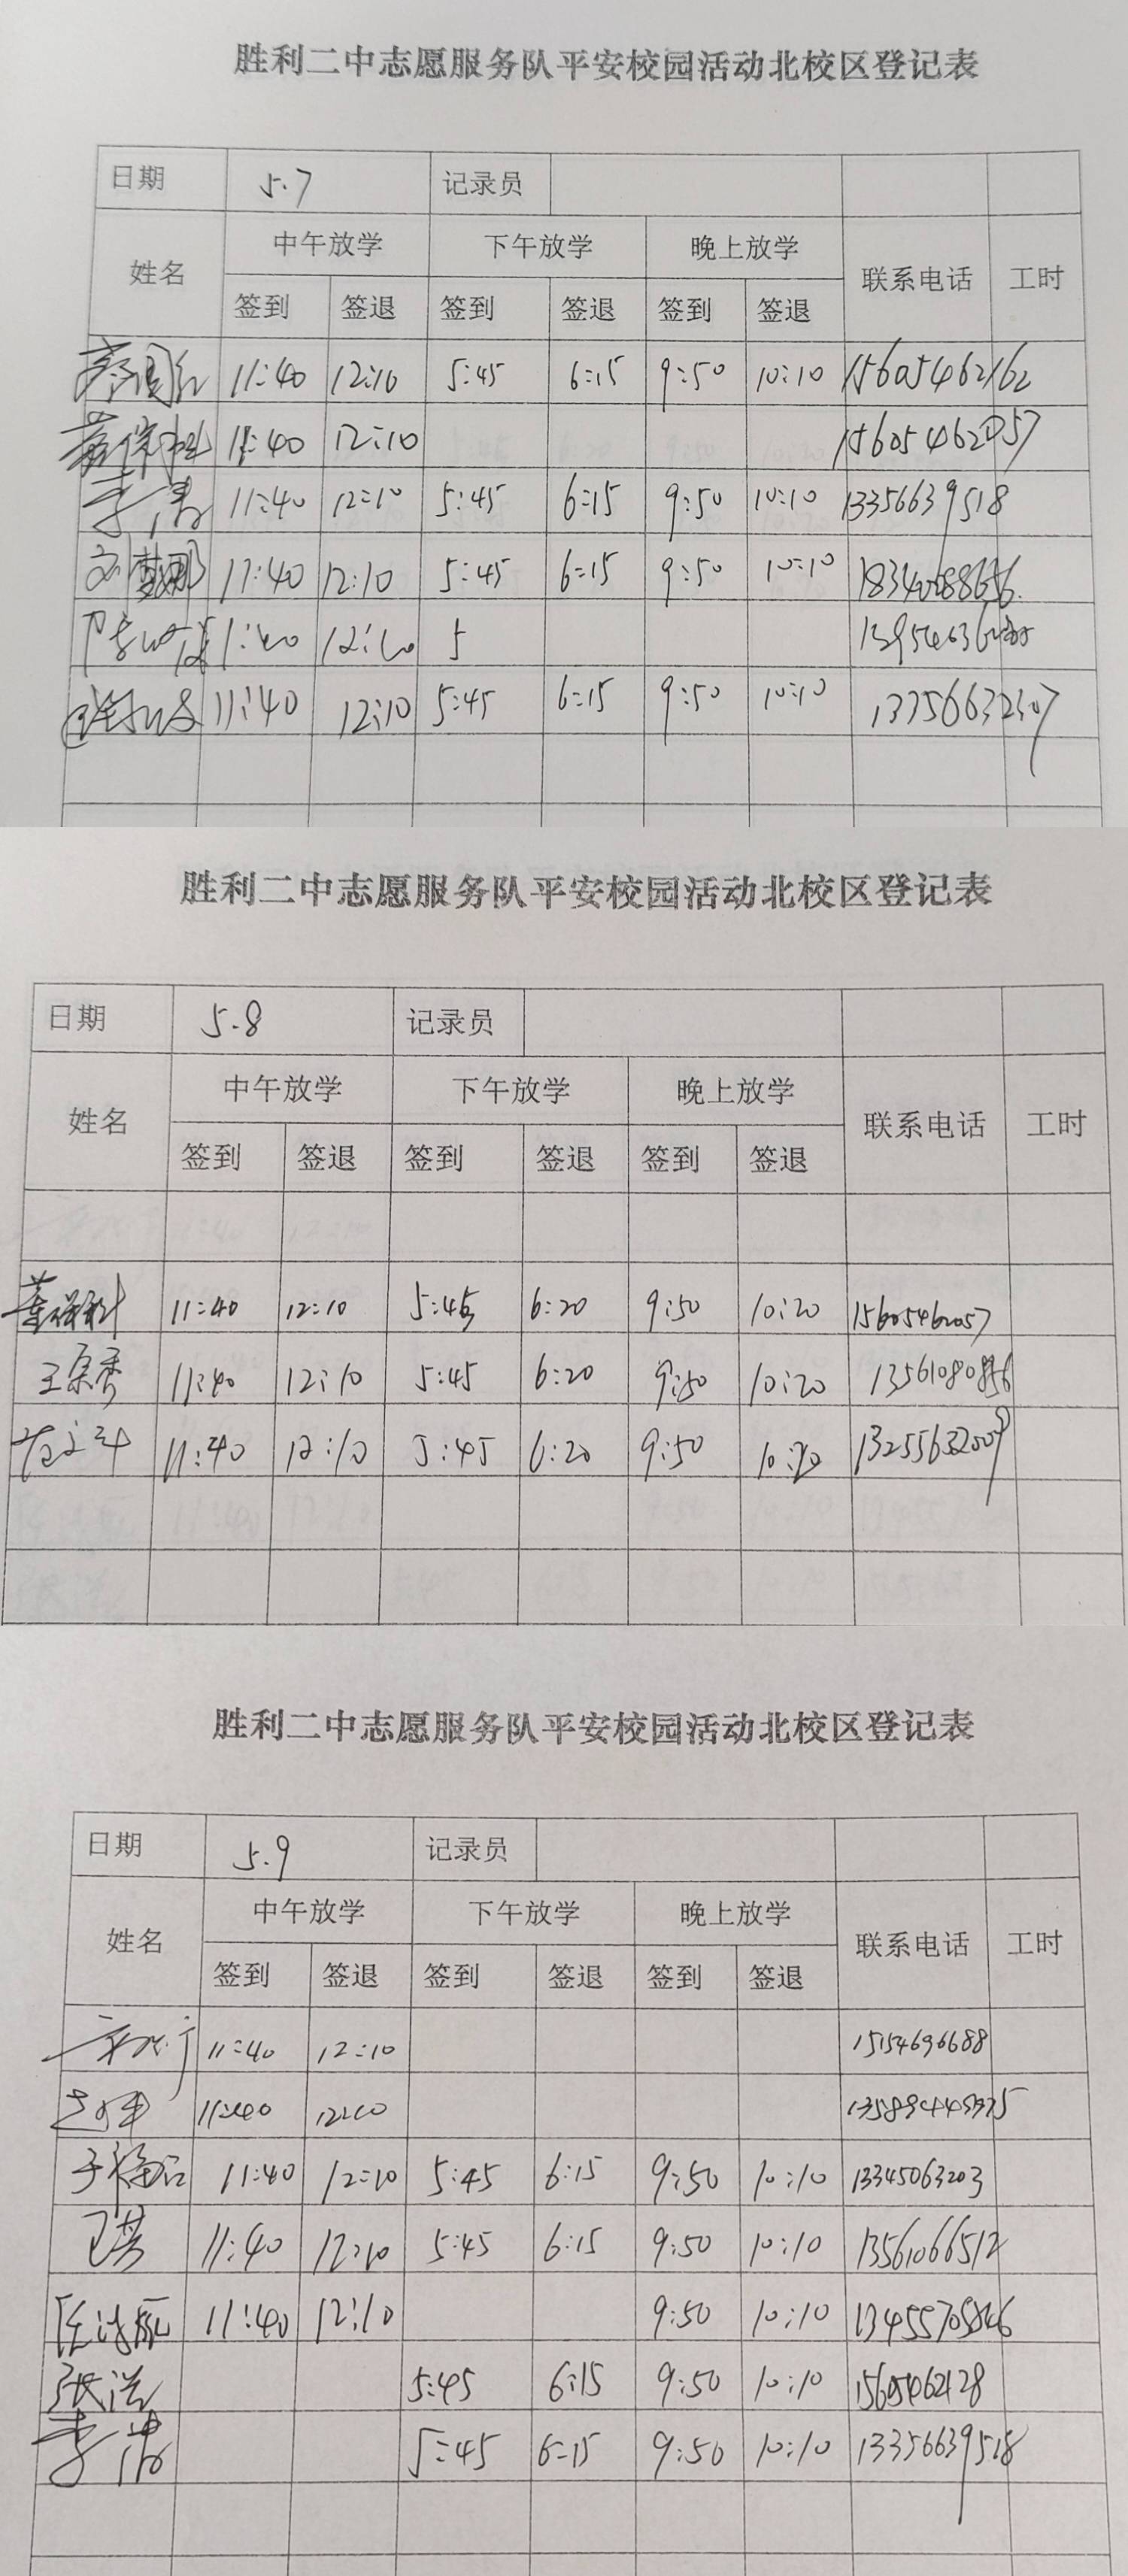 胜利二中志愿服务队平安校园活动北校区登记表
日期 5.7 记录员
姓名 中午放学 下午放学 晚上放学 联系电话 工时
签到 签退 签到 签退 签到 签退
11:40 12:10 5:45 6:15 9:50 10:10 15605462162
11:40 12:10 15605462057
李涛 11:40 12:10 5:45 6:15 9:50 10:10 13356639518
11:40 12:10 5:45 6:15 9:50 10:10
11:40 12:10 5
11:40 12:10 5:45 6:15 9:50 10:10
胜利二中志愿服务队平安校园活动北校区登记表
日期 5.8 记录员
姓名 中午放学 下午放学 晚上放学 联系电话 工时
签到 签退 签到 签退 签到 签退
11:40 12:10 5:45 6:20 9:50 10:20 15605462057
王宗秀 11:40 12:10 5:45 6:20 9:50 10:20
11:40 12:10 5:45 6:20 9:50 10:20
胜利二中志愿服务队平安校园活动北校区登记表
日期 5.9 记录员
姓名 中午放学 下午放学 晚上放学 联系电话 工时
签到 签退 签到 签退 签到 签退
11:40 12:10 15154696688
11:40 12:10
11:40 12:10 5:45 6:15 9:50 10:10 13345063203
11:40 12:10 5:45 6:15 9:50 10:10 13561066512
11:40 12:10 9:50 10:10
张洪 5:45 6:15 9:50 10:10 15605462128
李涛 5:45 6:15 9:50 10:10 13356639518